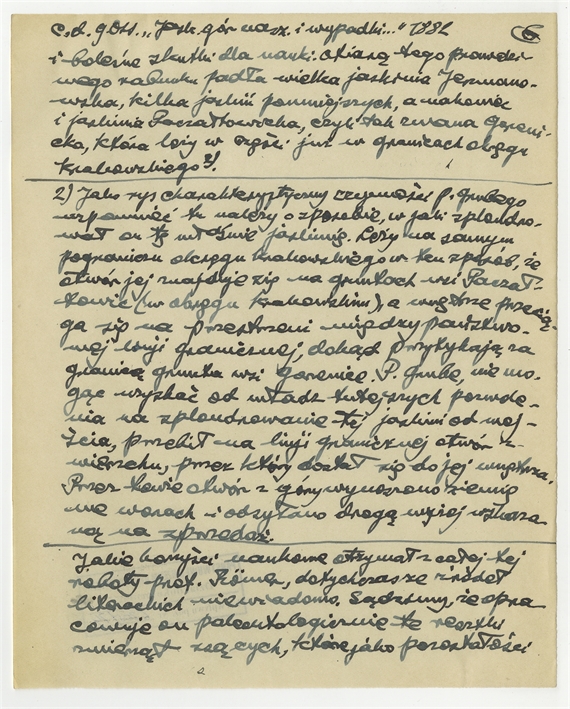 c.d. Goss. „Jask. gór nasz. i wypadki..." 1882 6
i bolesne skutki dla nauki. Ofiarą tego prawdzi-
wego rabunku padła wielka jaskinia Jermano-
wska, kilka jaskiń pomniejszych, a nakoniec
i jaskinia Paczałtowicka, czyli tak zwana goreni-
cka, która leży w części już w granicach okręgu
Krakowskiego 2).
2) Jako rys charakterystyczny czynności p. Grubego
wspomnieć tu należy o sposobie, w jaki splondro-
wał on tę właśnie jaskinię. Leży na samym
pograniczu okręgu krakowskiego w ten sposób, że
otwór jej znajduje się na gruntach wsi Paczał-
towic (w okręgu Krakowskim), a wnętrze przecią-
ga się na przestrzeni międzypaństwo-
wej linji granicznej, dokąd przytykają za
granicą grunta wsi Gorenice. P. Grube, nie mo-
gąc uzyskać od władz tutejszych pozwole-
nia na splondrowanie tej jaskini od wej-
ścia, przebił na linji granicznej otwór z
wierzchu, przez który dostał się do jej wnętrza.
Przez takie otwór z góry wynoszono ziemię
we worach i odsyłano drogą wyżej wskaza
ną na sprzedaż.
Jakie korzyści naukowe otrzymał z całej tej
roboty prof. Römer, dotychczas ze źródeł
literackich niewiadomo. Sądzimy, że opra
cowuje on paleontologicznie te resztki
zwierząt ssących, które jako pozostałości